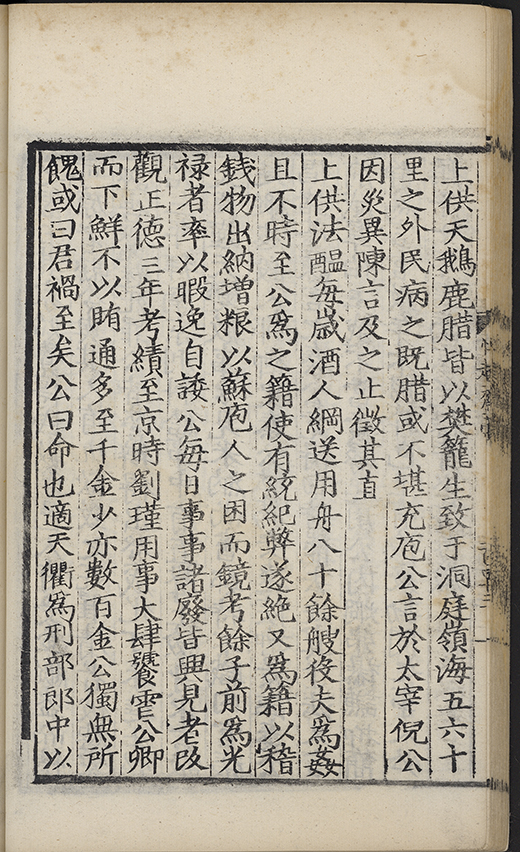 上供天鵝鹿腊皆以樊籠生致于洞庭嶺海五六十
里之外民病之既腊或不堪充庖公言於太宰倪公
因災異陳言及之止徵其直
上供法醖每歲酒人綱送用舟八十餘艘役夫爲姦
且不時至公爲之籍使有統紀弊遂絶又爲籍以稽
銭物出納增粮以蘇庖人之困而鏡考餘子前爲光
禄者率以暇逸自諉公每日事事諸廢皆興見老改
觀正德三年考績至京時劉瑾用事大肆饕霅公卿
而下鮮不以賄通多至千金少亦數百金公獨無所
餽或曰君禍至矣公曰命也適天衢爲刑部郎中以